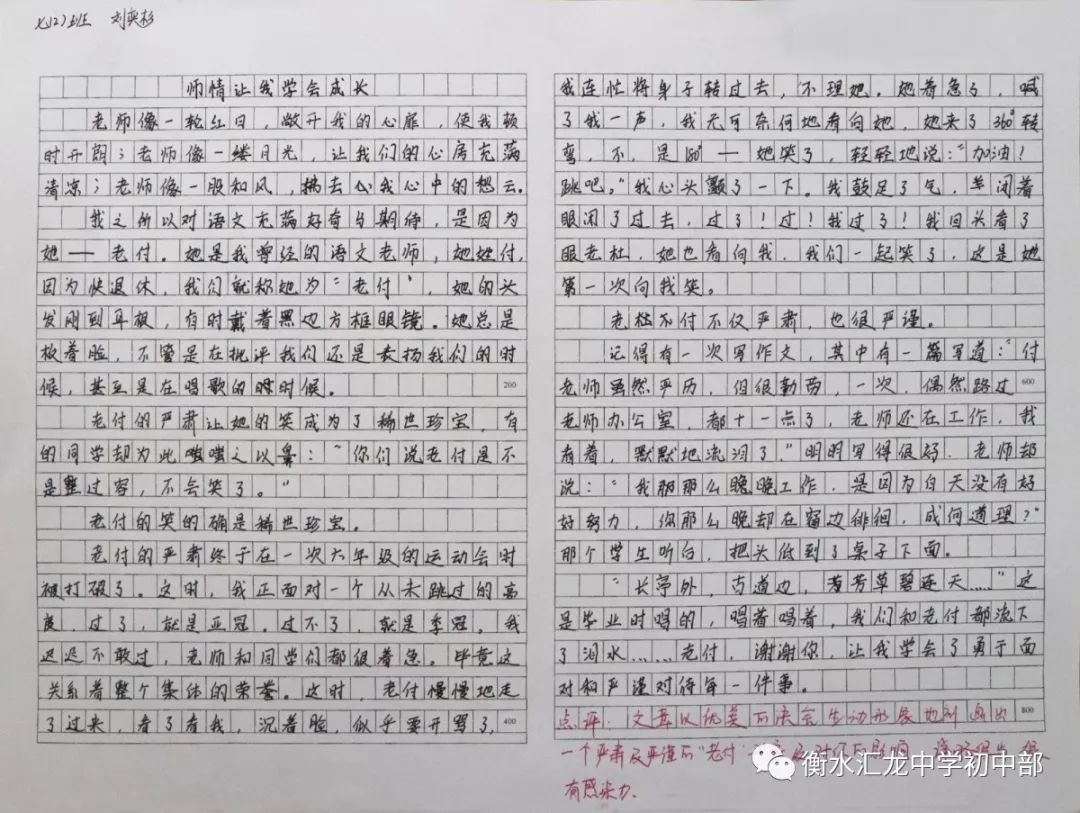 七(2)班 刘奕杉
师情让我学会成长
老师像一轮红日，敞开我的心扉，使我顿
时开朗；老师像一缕月光，让我们的心房充满
清凉；老师像一股和风，拂去心我心中的愁云。
我之所以对语文充满好奇与期待，是因为
她——老付。她是我曾经的语文老师，她姓付，
因为快退休，我们就称她为“老付”，她的头
发刚到耳根，有时戴着黑边方框眼镜。她总是
板着脸，不管是在批评我们还是表扬我们的时
候，甚至是在唱歌的时候。
200
老付的严肃让她的笑成为了稀世珍宝，有
的同学却为此嗤嗤之以鼻：“你们说老付是不
是整过容，不会笑了。”
老付的笑的确是稀世珍宝。
老付的严肃终于在一次六年级的运动会时
被打破了。这时，我正面对一个从未跳过的高
度，过了，就是亚冠。过不了，就是季冠。我
迟迟不敢过，老师和同学们都很着急。毕竟这
关系着整个集体的荣誉。这时，老付慢慢地走
了过来，看了看我，沉着脸，似乎要开骂了，
400
我连忙将身子转过去，不理她。她着急了，喊
了我一声，我无可奈何地看向她，她来了360°转
弯，不，是180°——她笑了，轻轻地说：“加油！
跳吧。”我心头颤了一下。我鼓足了气，半闭着
眼闭了过去，过了！过！我过了！我回头看了
眼老杜，她也看向我，我们一起笑了，这是她
第一次向我笑。
老杜不付不仅严肃，也很严谨。
记得有一次写作文，其中有一篇写道：“付
老师虽然严历，但很勤劳，一次，偶然路过
600
老师办公室，都十一点了，老师还在工作，我
看着，默默地流泪了。”明明写得很好，老师却
说：“我那那么晚晚工作，是因为白天没有好
好努力，你那么晚却在窗边徘徊，成何道理？”
那个学生听白，把头低到了桌子下面。
“长亭外，古道边，芳芳草碧连天……”这
是毕业时唱的，唱着唱着，我们和老付都流下
了泪水……老付，谢谢你，让我学会了勇于面
对和严谨对待每一件事。
点评：文章以优美的 生动形象地刻画出
800
一个严肃及严谨的“老付”
有感染力。
衡水汇龙中学初中部